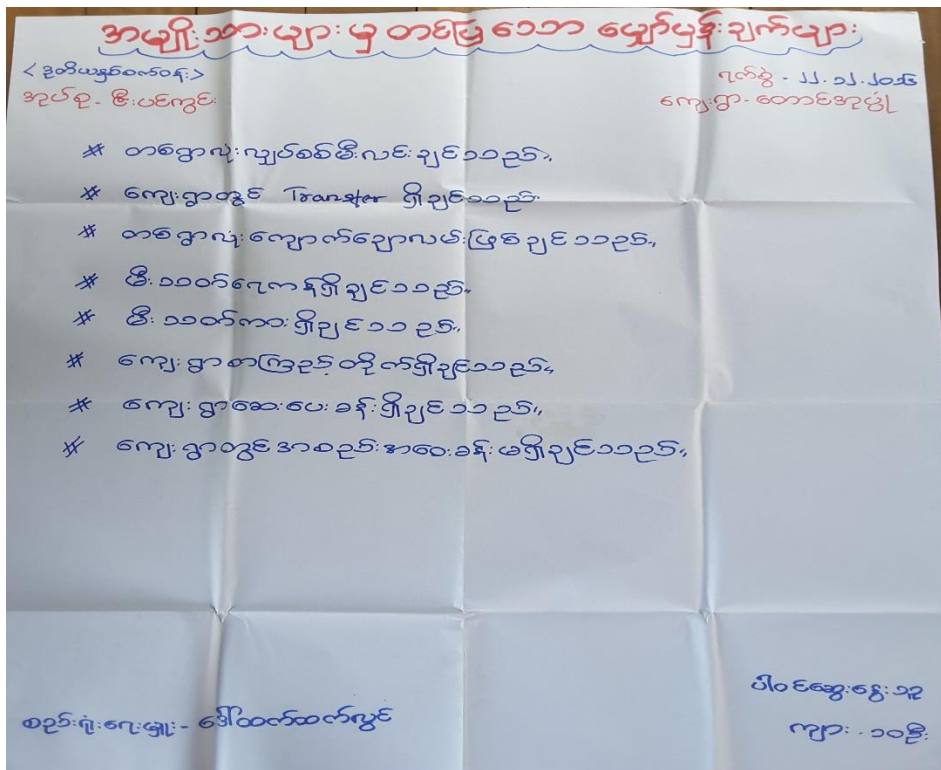 အမျိုးသားများ မှ တင်ပြ သော မျှော်မှန်းချက်များ
<ဒုတိယနှစ်စက်ဝန်း>
ရက်စွဲ - ၂၂.၁၂.၂၀၁၆
အုပ်စု - ဇီးပင်ကွင်း
ကျေးရွာ - တောင်အုပ်ပုံ
# တစ်ရွာလုံးလျှပ်စစ်မီးလင်းချင်သည်။
# ကျေးရွာတွင် Transfer ရှိချင်သည်။
# တစ်ရွာလုံးကျောက်ချောလမ်းဖြစ်ချင်သည်။
# မီးသတ်ရေကန်ရှိချင်သည်။
# မီးသတ်ကားရှိချင်သည်။
# ကျေးရွာစာကြည့်တိုက်ရှိချင်သည်။
# ကျေးရွာဆေးပေးခန်းရှိချင်သည်။
# ကျေးရွာတွင်အစည်းအဝေးခန်းမရှိချင်သည်။
ပါဝင်ဆွေးနွေးသူ
စည်းရုံးရေးမှူး - ဒေါ်ထက်ထက်လွင်
ကျား - ၁၀ဦး